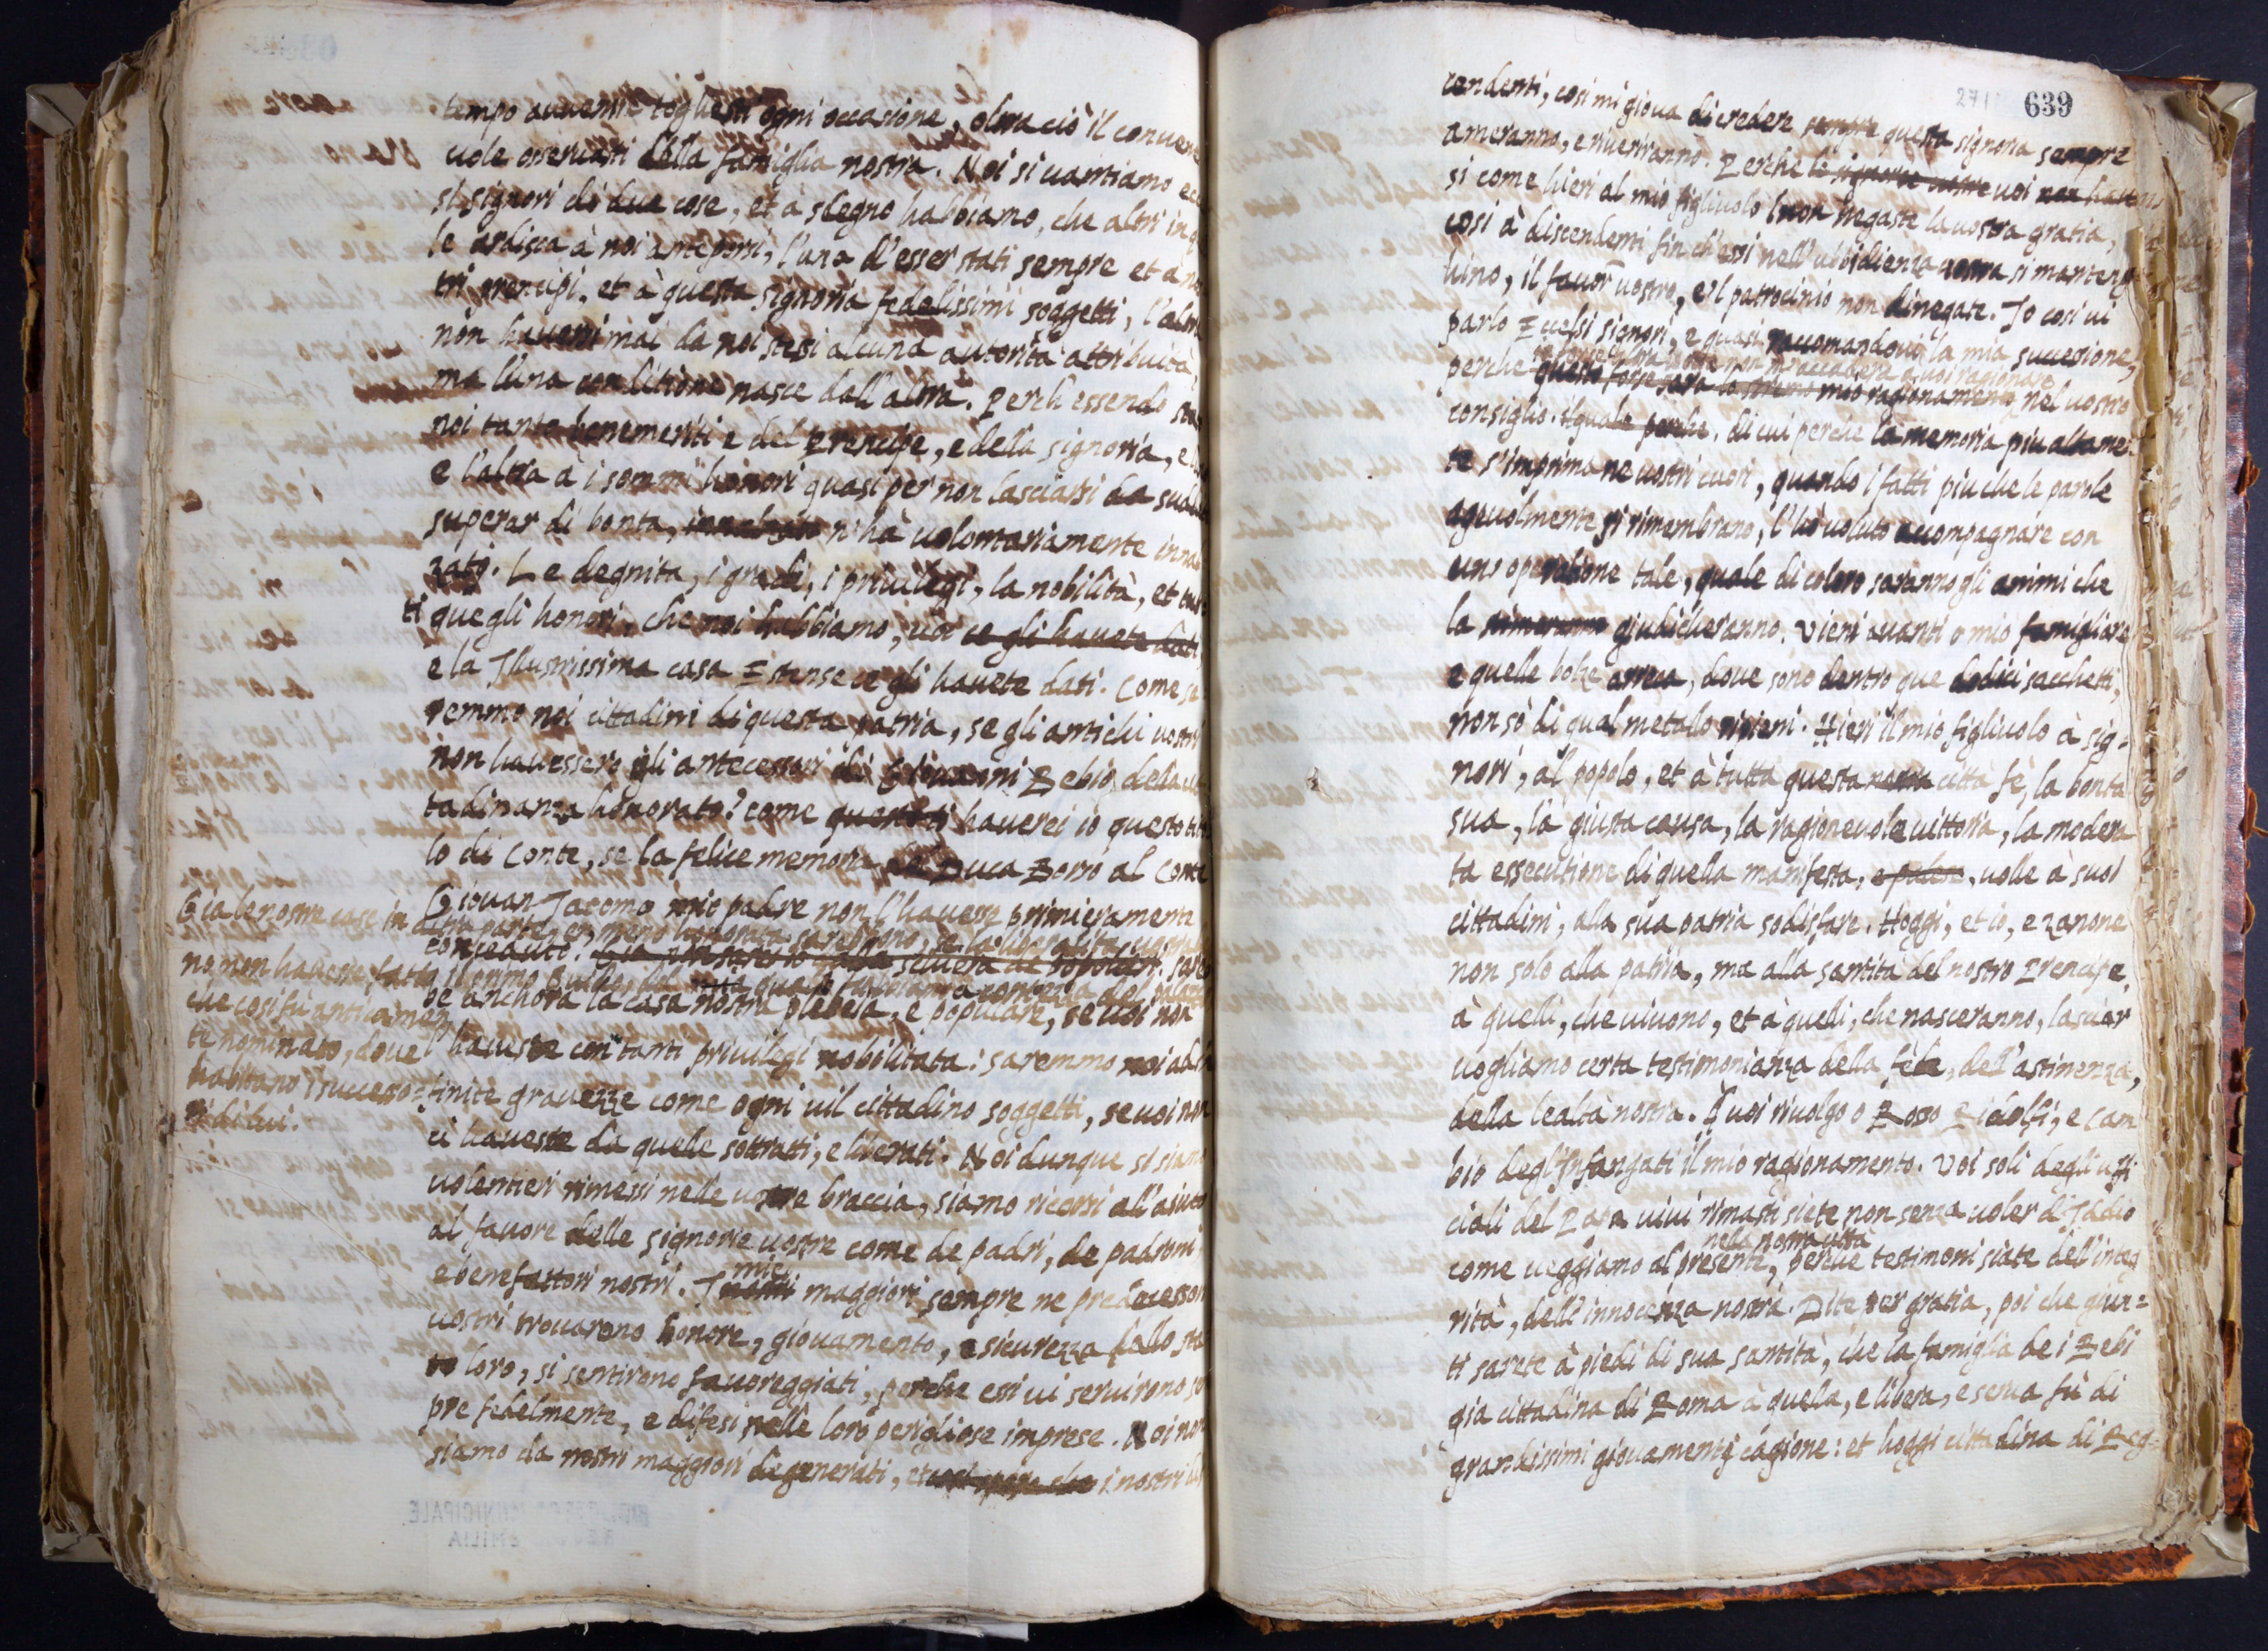 tempo avvenir togliesti ogni occasione, oltra ciò il convene
vole osservasti della famiglia nostra. Noi si vantiamo ec
si signori di due cose, et à sdegno habbiamo, che altri in q
le ardisca à noi anteporsi, l'una d'esser stati sempre et a no
tri prencipi, et à questa signoria fedelissimi soggetti, l'altra
non haverci mai da noi stessi alcuna autorità attribuita,
ma l'una conditione nasce dall'altra. Perch' essendo sta
noi tanto benemeriti e del Prencipe, e della signoria, e
e l'altra à i sommi honori quasi per non lasciarsi da sudd
superar di bonta, n'hà volontariamente inna
zato. Le degnita, i gradi, i privilegi, la nobilità, et tut
ti quegli honori, che noi habbiamo, voi ce gli havete dati
e la Illustrissima casa Estense ce gli havete dati. Come sa
remmo noi cittadini di questa patria, se gli antichi vostri
non havessero gli antecessori di Giovanni Bebio della cit
tadinanza honorato? come haverei io questo tito
lo di Conte, se la felice memoria Duca Borso al Conte
Giovan Jacomo mio padre non l'havesse primieramente
conceduto. sareb
be anchora la casa nostra plebeia, e populare, se voi non
l'haveste con tanti privilegi nobilitata: saremmo noi ad in
finite gravezze come ogni vil cittadino soggetti, se voi non
ci haveste da quelle sottratti, e liberati. Noi dunque si siam
volentieri rimessi nelle vostre braccia, siamo ricorsi all'aiuto
al favore delle signorie vostre come de padri, de padroni
e benefattori nostri. I miei maggiori sempre ne predecessori
vostri trovarono honore, giovamento, e sicurezza dello sta
to loro, si sentirono favoreggiati, perche essi vi servirono se
pre fedelmente, e difesi nelle loro perigliose imprese. Noi non
siamo da nostri maggiori degenerati, et i nostri
Gia le nostre case in
altra parte, ne meno honorate sarebbono, se la liberalità
no, non havesse fatto
che cosi fù anticamen
te nominato, dove
habitano i successo=
ri di lui.
271 639
cendenti, cosi mi giova di credere sempre questa signoria sempre
ameranno, e riveriranno. Perche le signorie vostre voi non have
si come hieri al mio figlivolo non negaste la vostra gratia,
cosi à discendenti fin ch'essi nell'ubidienza vostra si manteng
hino, il favor vostro, e'l patrocinio non dinegate. Io cosi vi
parlo Ecelsi signori, e quasi raccomandovi la mia successione,
perche forse mio ragionamento nel vostro
consiglio. ilquale perche, di cui perche la memoria piu altame
te s'imprima ne vostri cuori, quando i fatti piu che le parole
agevolmente si rimembrano, l'hò voluto accompagnare con
una operatione tale, quale di coloro saranno gli animi che
la giudicheranno. Vieni avanti o mio famigliare
e quelle bolze arreca, dove sono dentro que dodici sacchetti,
non sò di qual metallo ripieni. Hieri il mio figlivolo à sig=
nori, al popolo, et à tutta questa nostra città fè, la bonta
sua, la giusta causa, la ragionevole vittoria, la modera
ta essecutione di quella manifesta, e palese, volle à suoi
cittadini, alla sua patria sodisfare. Hoggi, et io, e Zanone
non solo alla patria, ma alla santità del nostro Prencipe,
à quelli, che vivono, et à quelli, che nasceranno, lasciar
vogliamo certa testimonianza della fede, dell'astinenza,
della lealtà nostra. A voi rivolgo o Rosso Ridolfi, e Cam
bio degl'Infangati il mio ragionamento. Voi soli degli uffi
ciali del Papa vivi rimasti siete non senza voler d'Iddio
nella nostra città
come veggiamo al presente, perche testimoni siate dell'integ
rità, dell'innocenza nostra. Dite per gratia, poi che giun=
ti sarete à piedi di sua santità, che la famiglia de i Bebi
gia cittadina di Roma à quella, e libera, e serva fù di
grandissimi giovamenti cagione: et hoggi cittadina di Reg=